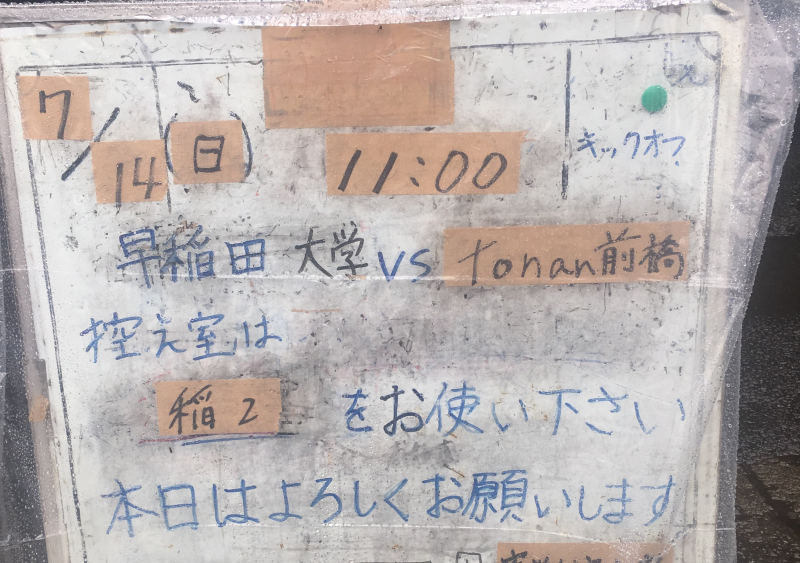 7/14(日) 11:00 キックオフ
早稲田大学 vs tonan前橋
控え室は
稲2 をお使い下さい
本日はよろしくお願いします